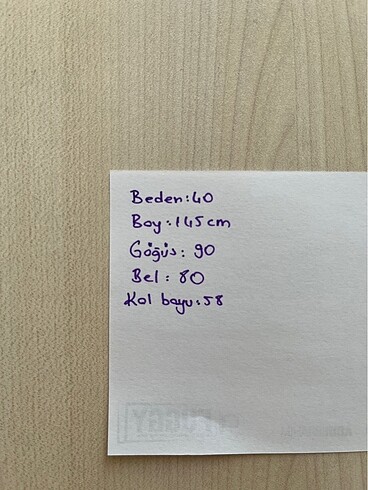 Beden:40
Boy:145cm
Göğüs: 90
Bel: 80
Kol boyu:58